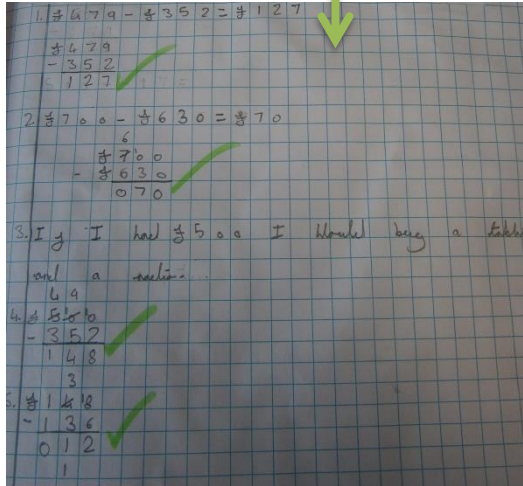 1. £479 - £352 = £127
£479
- 352
127
2. £700 - £630 = £70
6
£7100
- £630
070
3. If I had £500 I would buy a table
and a
4 9
4. £51010
- 352
148
3
5. £148
- 136
012
1